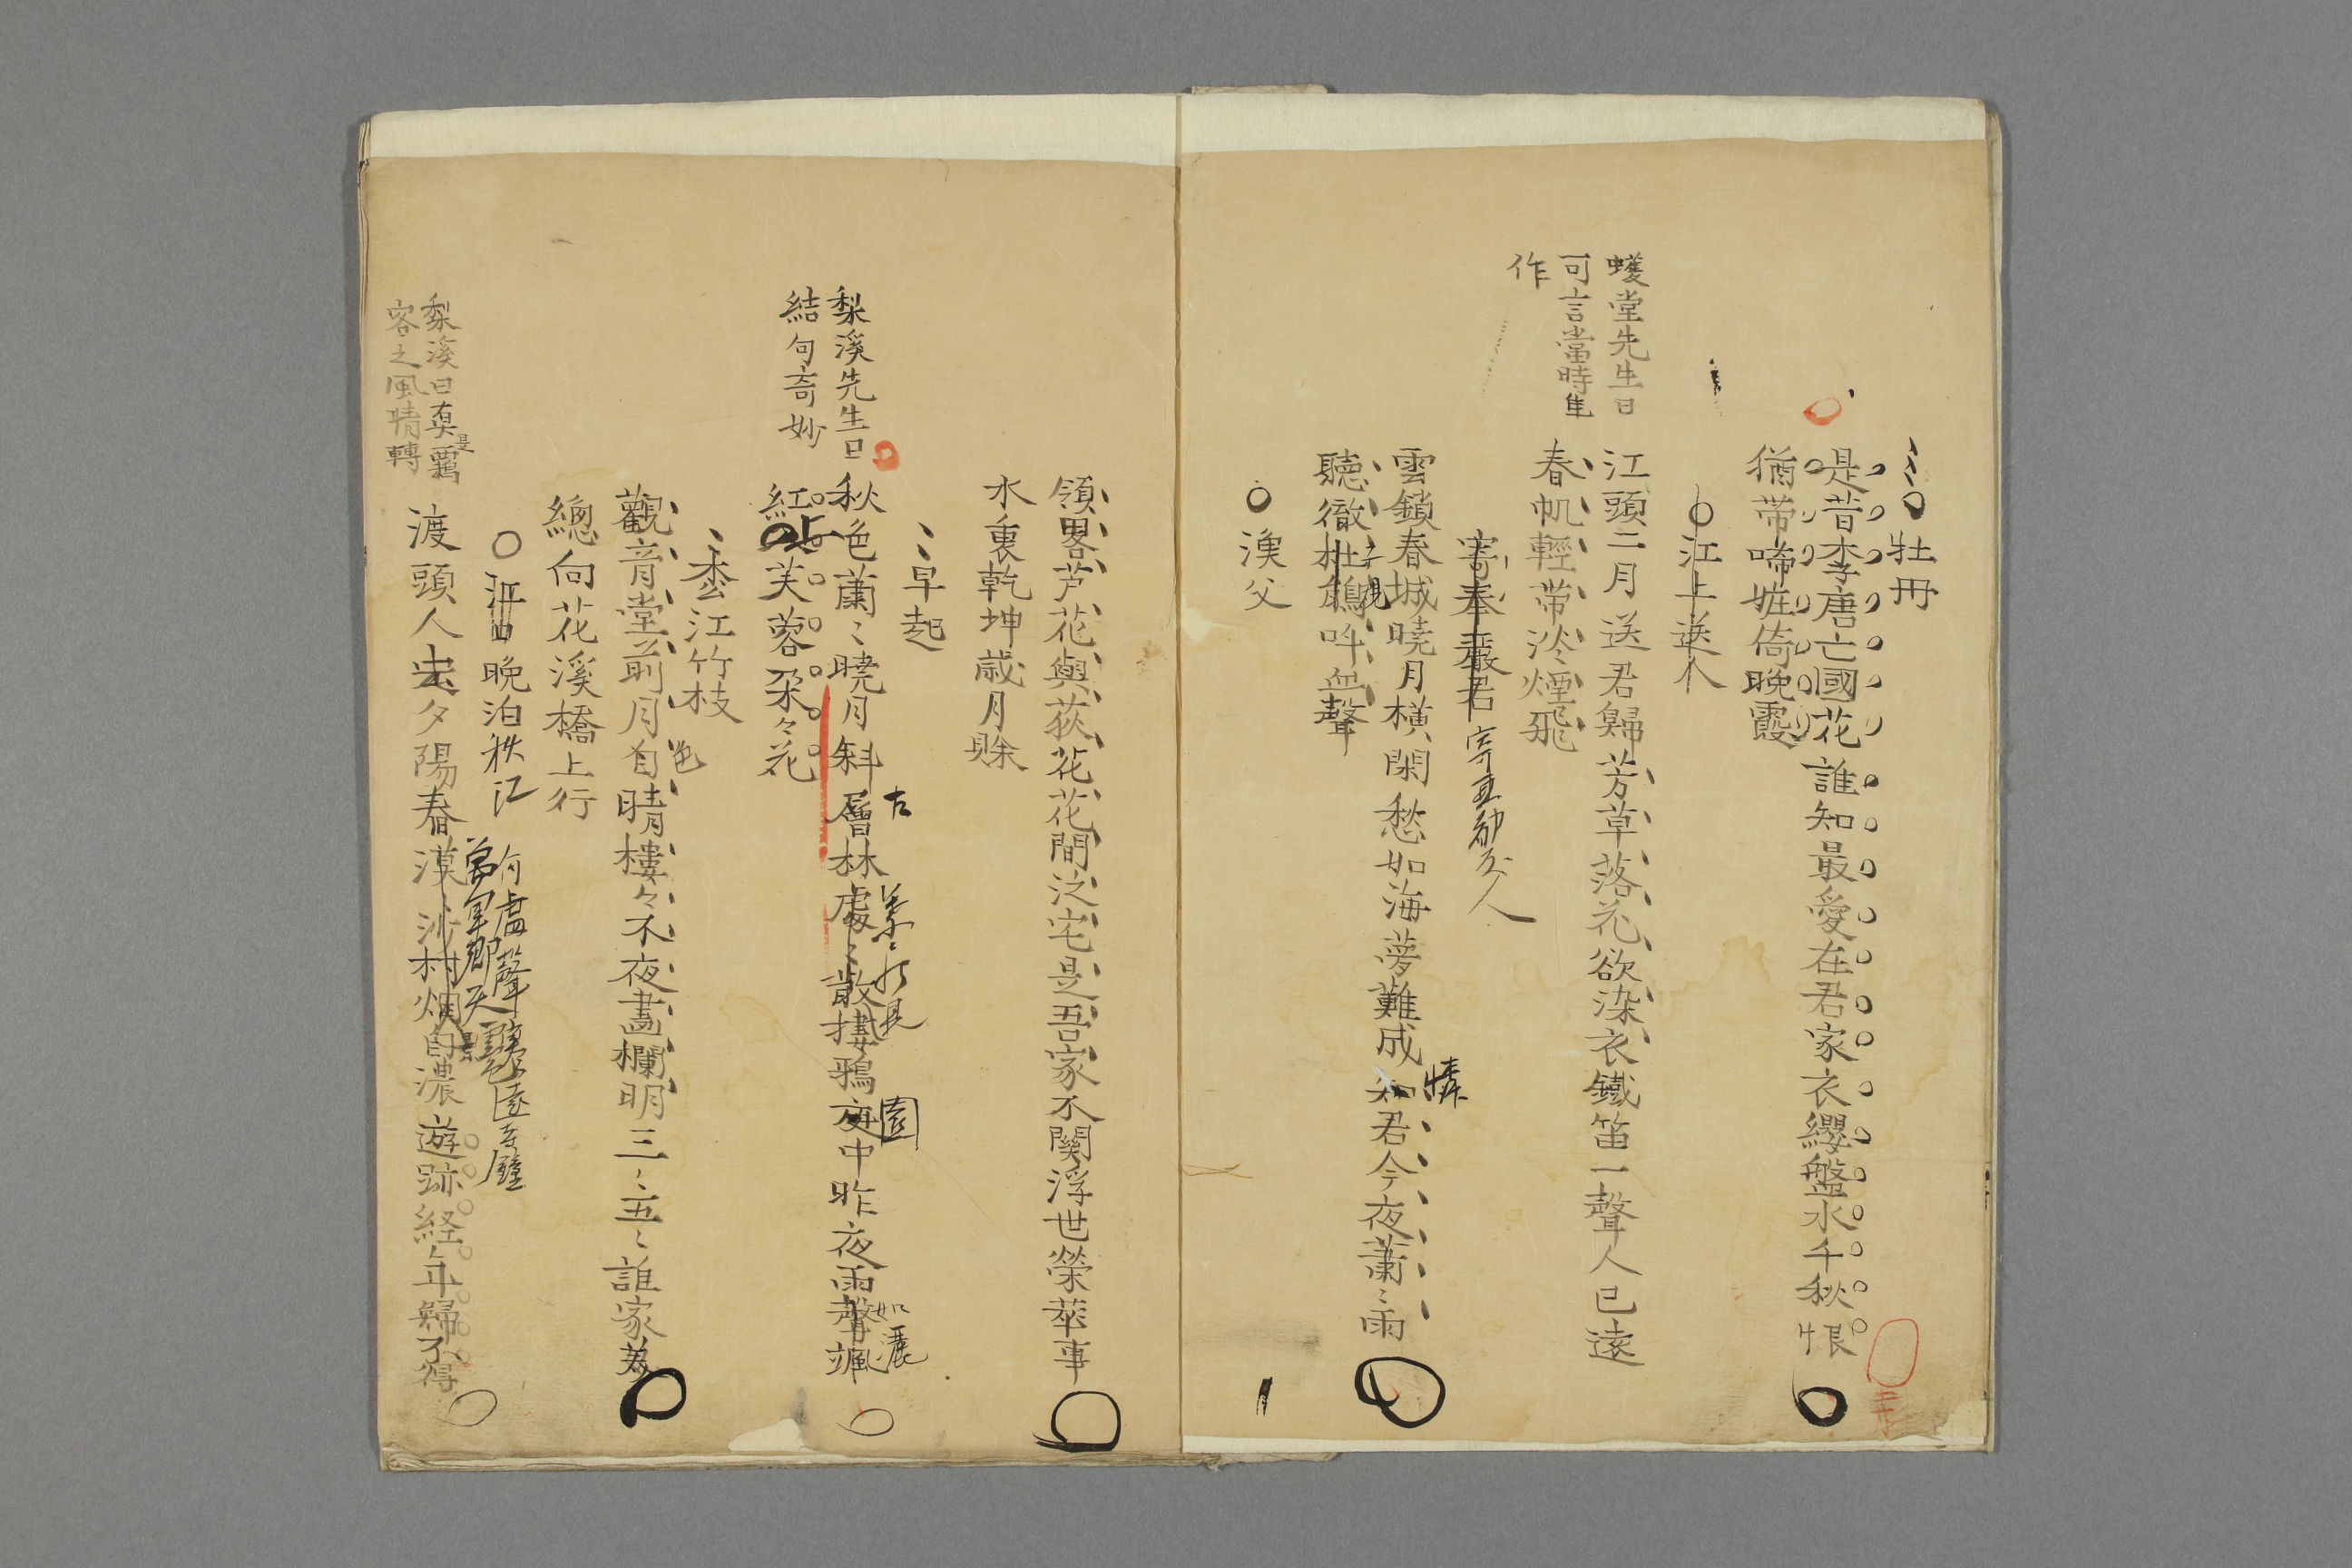 牡丹
是昔李唐亡國花誰知最愛在君家衣纓盤水千秋恨
猶帶啼妝倚晚霞
江上送人
蠖堂先生曰
可言當時
作
江頭二月送君歸芳草落花欲染衣鐵笛一聲人已遠
春帆輕帶淡煙飛
寄奉嚴君
雲鎖春城曉月橫閑愁如海夢難成憐君今夜蕭〻雨
聽徹杜鵑吽血聲
子規
漁父
領畧芦花與荻花花間泛宅是吾家不関浮世榮華事
水裏乾坤歲月賖
早起
梨溪先生曰
結句奇妙
秋色蕭〻曉月斜層林處〻散棲鴉庭中昨夜雨聲颯
古
園
如灑
紅芙蓉朶々花
江竹枝
觀音堂前月色晴樓々不夜畵欄明三〻五〻誰家
總向花溪橋上行
晩泊秋江
何處聲
園寺鐘
梨溪曰真是羇
客之風情轉
渡頭人去夕陽舂漠〻沙村烟自濃遊跡経年歸不得